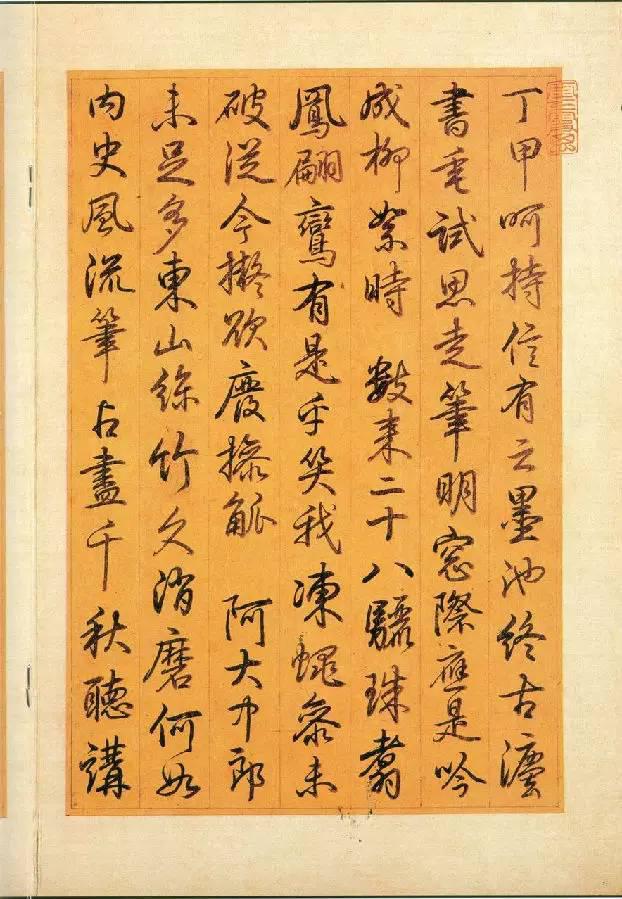 丁甲呵持信有之墨池終古
書垂試思走筆明窗際應是吟
成柳絮時 數來二十八驪珠翥
鳳翩鸞有是乎笑我凍蠅參未
破從今擬欲廢操觚 阿大中郎
未足多東山絲竹久消磨何如
內史風流筆占盡千秋聽講